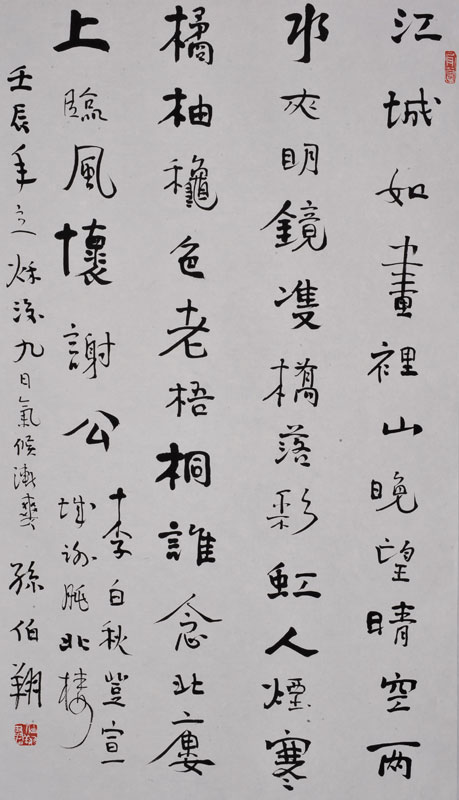 江城如畫裡山晚望晴空兩
水夾明鏡雙橋落彩虹人煙寒
橘柚龝色老梧桐誰念北廔
上臨風懷謝公
李白秋登宣
城謝脁北樓
壬辰年之秋深九日氣候漸爽 孫伯翔